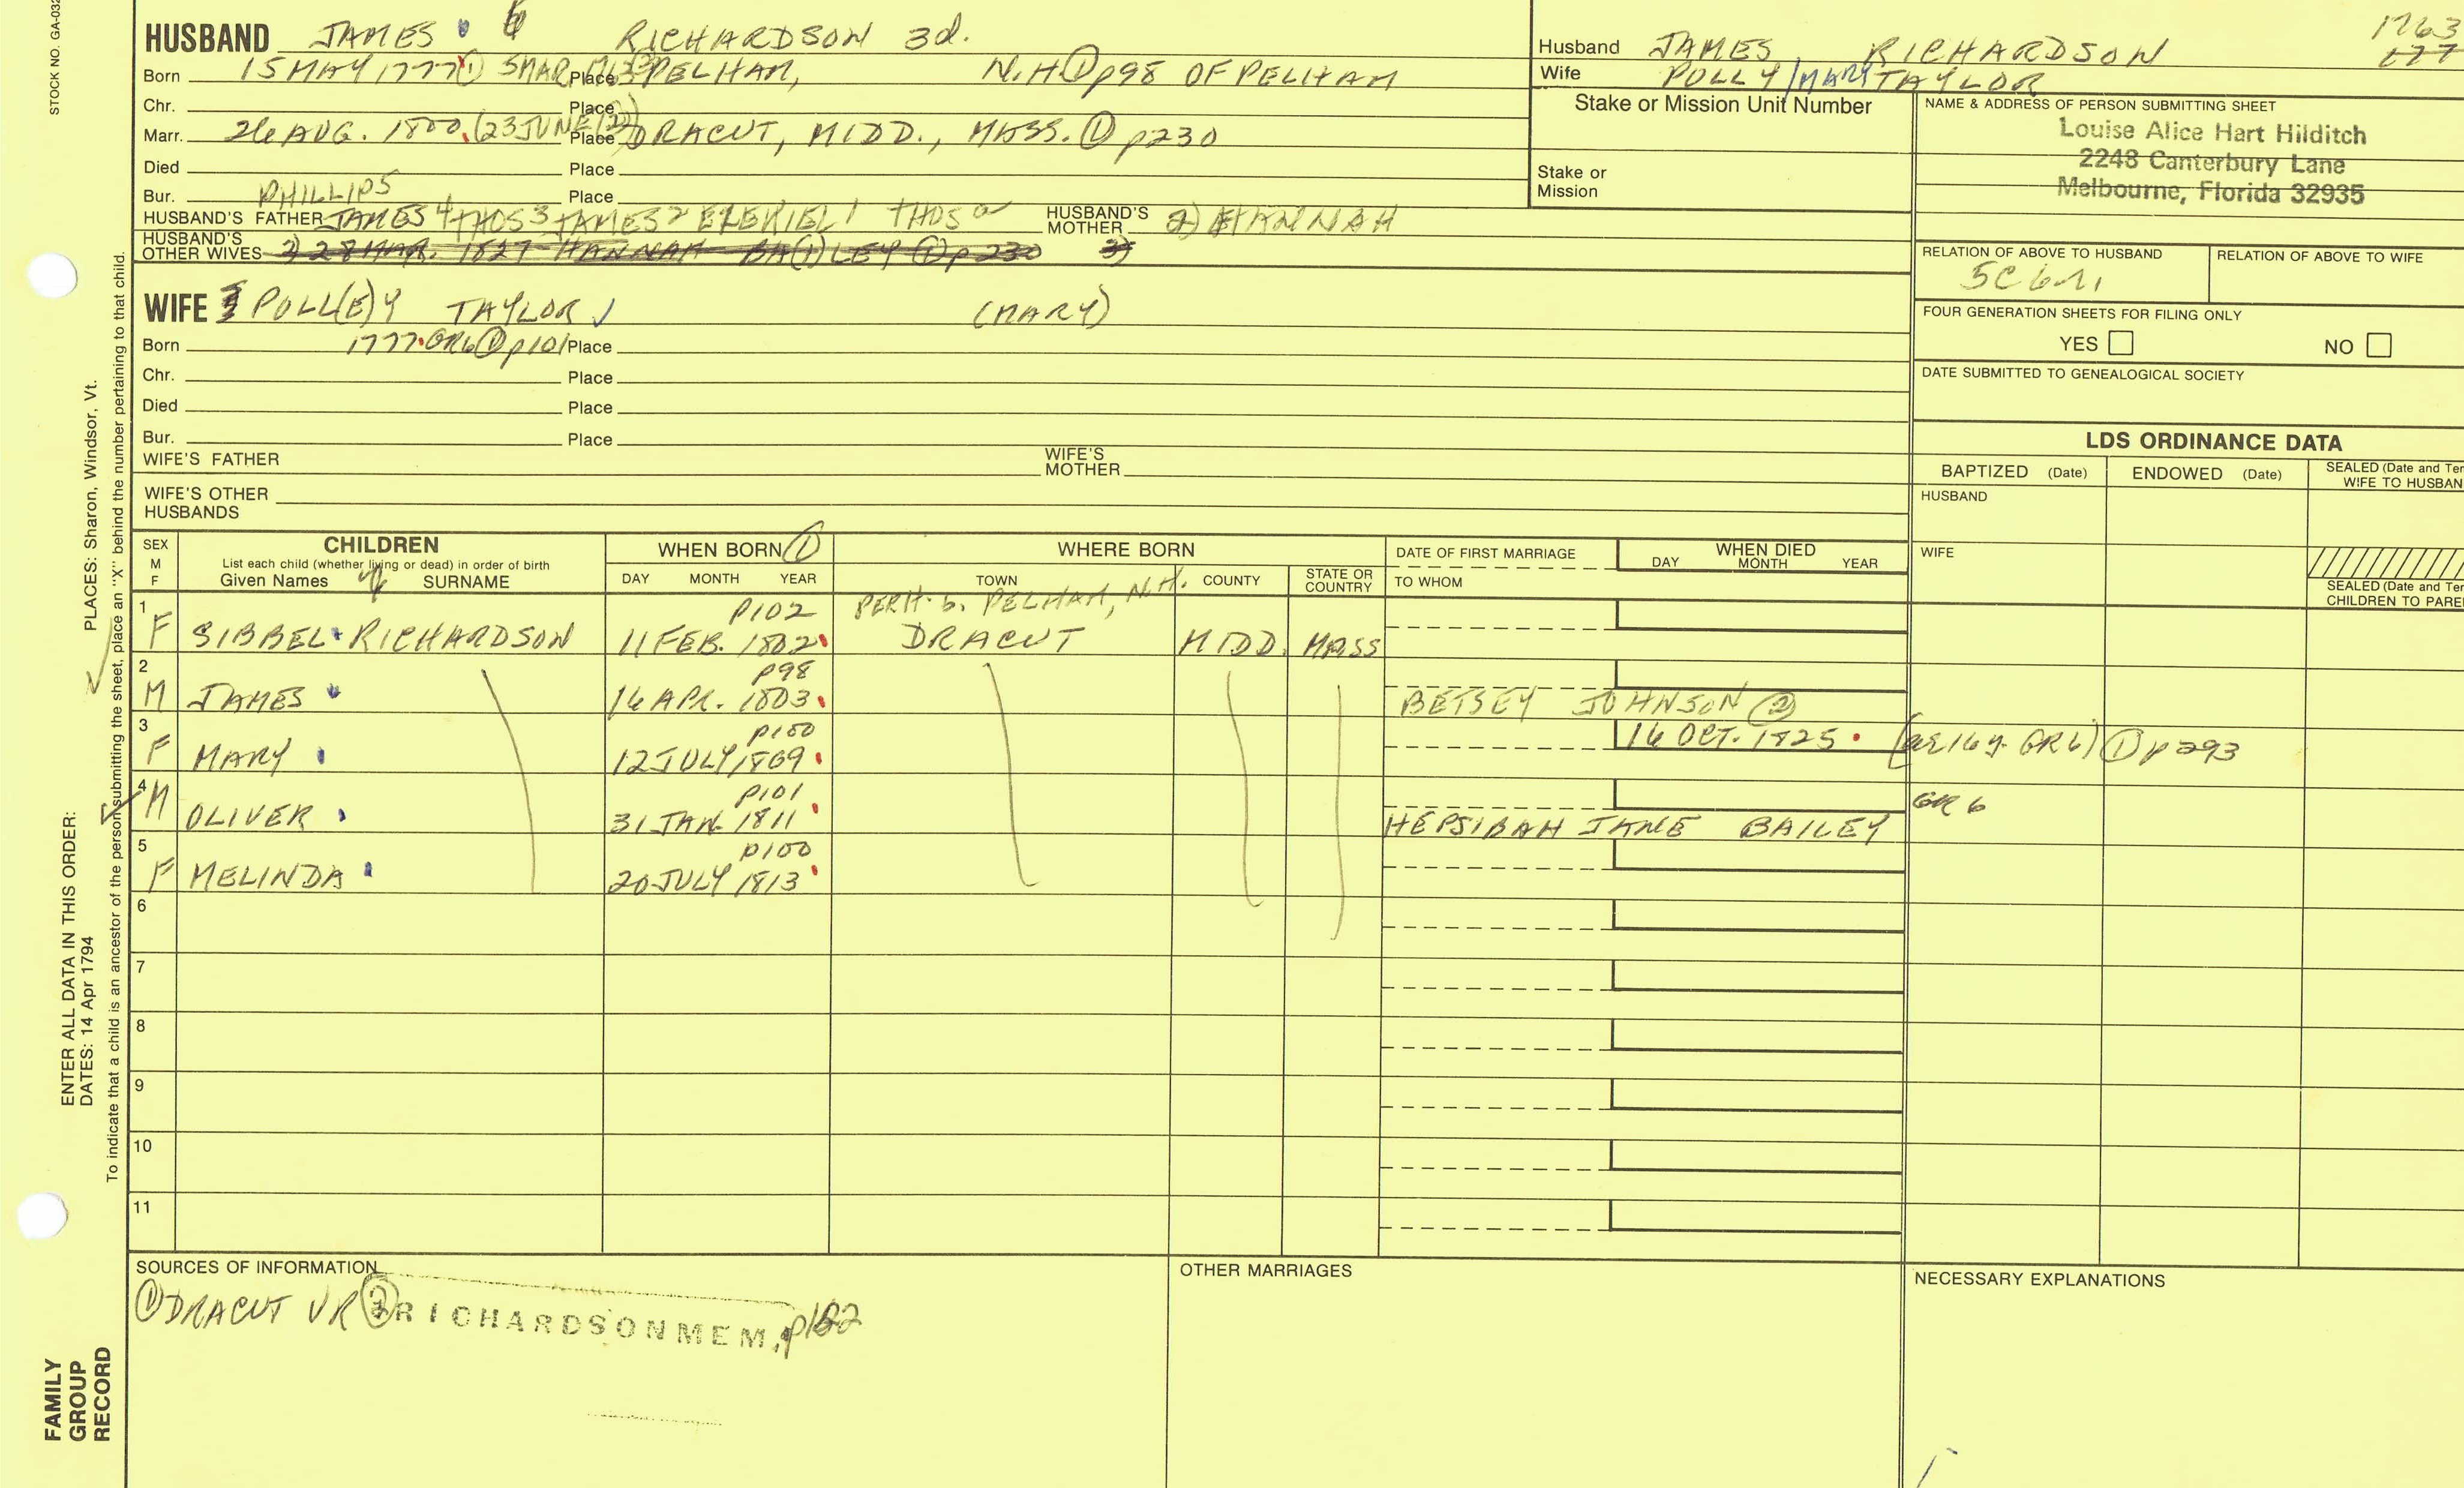 STOCK NO. GA-032
HUSBAND JAMES RICHARDSON 3d.
Born 15 MAY 1777 ① 5 MAR Place PELHAM, N.H ① p98 OF PELHAM
Chr. Place
Marr. 26 AUG. 1800. (23 JUNE ②) Place DRACUT, MIDD., MASS. ① p230
Died Place
Bur. Place
PHILLIPS
HUSBAND'S FATHER JAMES 4 THOS 3 JAMES 2 EZEKIEL 1 THOS a HUSBAND'S MOTHER 2) HANNAH
HUSBAND'S OTHER WIVES 2) 28 MAR. 1827 HANNAH BA(I)LEY ① p230 3)
WIFE POLL(E)Y TAYLOR (MARY)
Born 1777. GR6 ① p101 Place
Chr. Place
Died Place
Bur. Place
WIFE'S FATHER WIFE'S MOTHER
WIFE'S OTHER HUSBANDS
Husband JAMES RICHARDSON
1763
177
Wife POLLY/MARY TAYLOR
Stake or Mission Unit Number
Stake or Mission
NAME & ADDRESS OF PERSON SUBMITTING SHEET
Louise Alice Hart Hilditch
2248 Canterbury Lane
Melbourne, Florida 32935
RELATION OF ABOVE TO HUSBAND RELATION OF ABOVE TO WIFE
5C 6r1
FOUR GENERATION SHEETS FOR FILING ONLY
YES NO
DATE SUBMITTED TO GENEALOGICAL SOCIETY
LDS ORDINANCE DATA
BAPTIZED (Date) ENDOWED (Date) SEALED (Date and Ter
WIFE TO HUSBAN
HUSBAND
WIFE
SEALED (Date and Ter
CHILDREN TO PARE
SEX M F
CHILDREN
List each child (whether living or dead) in order of birth
Given Names SURNAME
WHEN BORN ①
DAY MONTH YEAR
WHERE BORN
TOWN COUNTY STATE OR COUNTRY
DATE OF FIRST MARRIAGE
TO WHOM
WHEN DIED
DAY MONTH YEAR
p102 PERH. b. PELHAM, N.H.
1 F SIBBEL RICHARDSON 11 FEB. 1802 DRACUT MIDD. MASS
p98
2 M JAMES 16 APR. 1803 BETSEY JOHNSON ②
p100 16 OCT. 1825 (ae 16y. GR6) ① p293
3 F MARY 12 JULY 1809
p101 GR 6
4 M OLIVER 31 JAN. 1811 HEPSIBAH JANE BAILEY
p100
5 F MELINDA 20 JULY 1813
6
7
8
9
10
11
SOURCES OF INFORMATION
① DRACUT VR ② RICHARDSON MEM, p122
OTHER MARRIAGES
NECESSARY EXPLANATIONS
PLACES: Sharon, Windsor, Vt.
ENTER ALL DATA IN THIS ORDER:
DATES: 14 Apr 1794
To indicate that a child is an ancestor of the person submitting the sheet, place an "X" behind the number pertaining to that child.
FAMILY
GROUP
RECORD